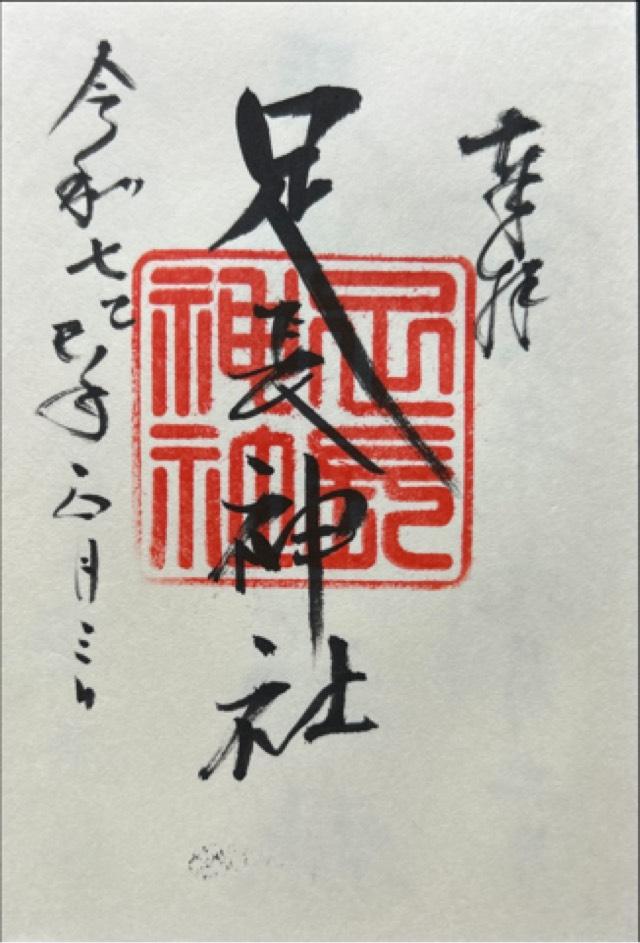 奉拝
足長神社
足長
神社
令和七乙巳年正月三日